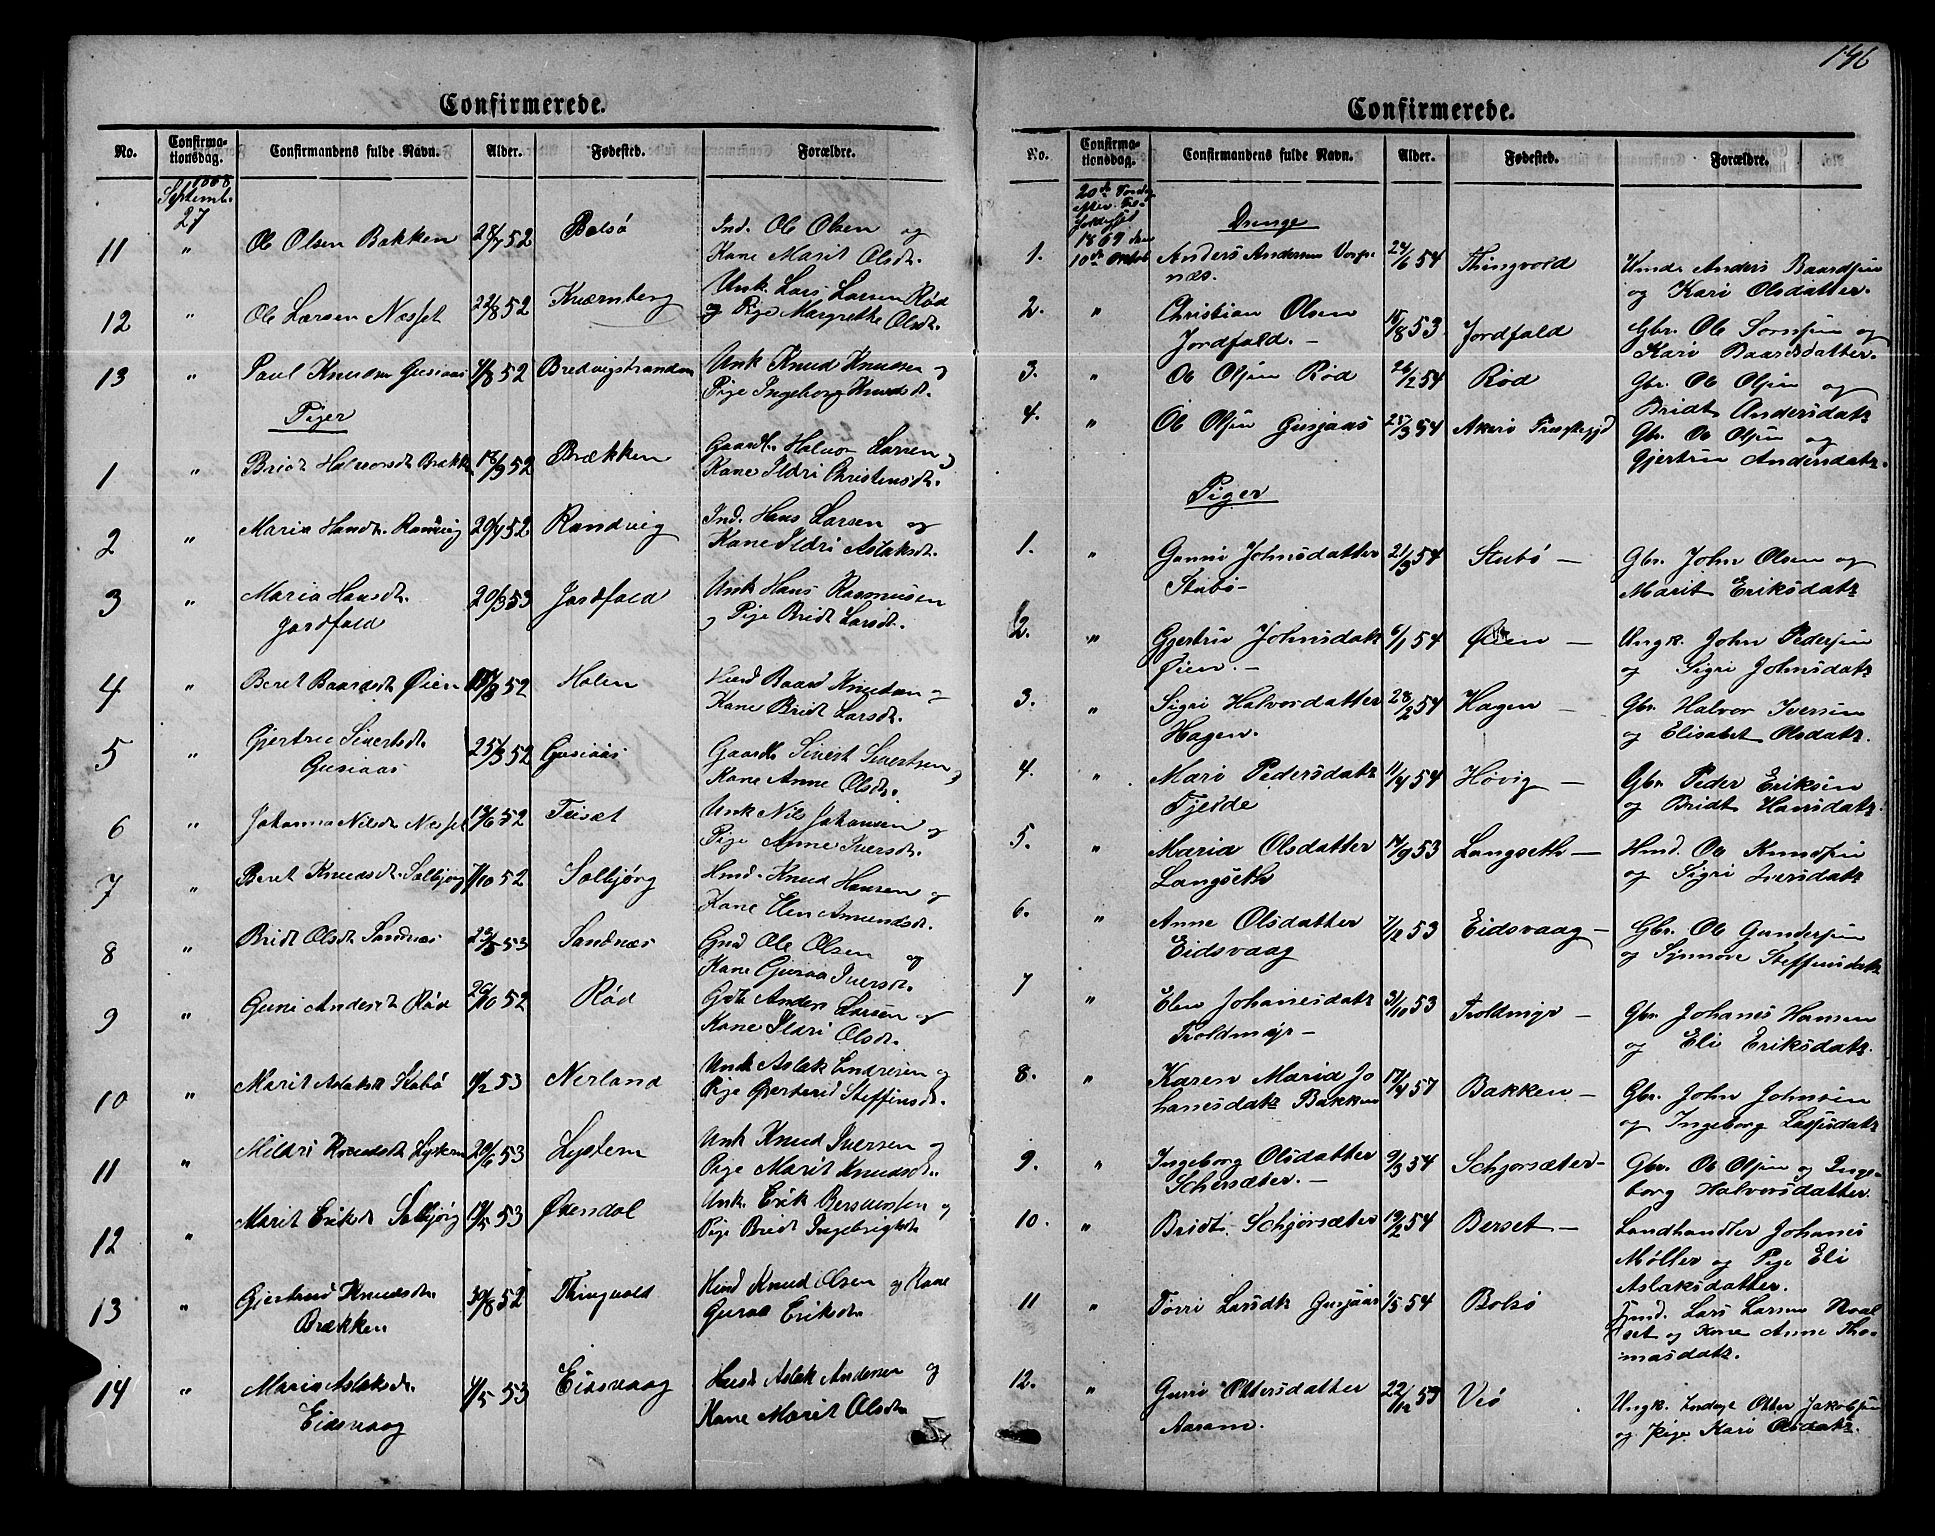 Confirmerede.
No. Confirmationsdag. Confirmandens fulde Navn. Alder. Fødested. Forældre.
1868
Septemb.
27
11 " Ole Olsen Bakken 28/7 52 Bolsø Ind. Ole Olsen og
Kone Marit Olsdt.
12 " Ole Larsen Nesset 22/8 52 Kværnberg Unk. Lars Larsen Rød
og Pige Margrethe Olsdt.
13 " Paul Knudsen Gusiaas 4/8 52 Bredvigstranden Unk Knud Knudsen og
Pige Ingeborg Knudsdt.
Piger
1 " Bridt Halvorsdt Brækken 18/9 52 Brækken Gaardb. Halvor Larsen og
Kone Ildri Christensdt.
2 " Maria Hansdt. Randvig 29/4 52 Randvig Ind. Hans Larsen og
Kone Ildri Aslaksdt.
3 " Maria Hansdt.
Jordfald 20/3 53 Jordfald Unk Hans Rasmussen
og Pige Bridt Larsdt.
4 " Beret Baardsdt Øien 52 Holen Huusd Baard Knudsen og
Kone Bridt Larsdt.
5 " Gjertrud Sivertsdt.
Gusiaas 25/3 52 Gusiaas Gaardb Sivert Sivertsen og
Kone Anne Olsdt.
6 " Johanna Nilsdt Nesset 13/6 52 Tiset Unk Nils Johansen og
Pige Anne Iversdt.
7 " Beret Knudsdt. Solbjørg 7/10 52 Solbjørg Hmd. Knud Hansen og
Kone Elen Amundsdt.
8 " Bridt Olsdt Sandnæs 29/5 53 Sandnæs Gmd Ole Olsen og
Kone Guraa Iversdt.
9 " Guni Andersdt Rød 20/10 52 Rød Gbr Anders Larsen og
Kone Ildri Olsdt.
10 " Marit Aslaksdt Stubø 11/2 53 Nerland Unk Aslak Endresen og
Pige Gjertrud Steffensdt.
11 " Mildri Knudsdt Lystem 20/6 53 Lystem Unk Knud Iversen og
Pige Marit Knudsdt.
12 " Marit Eriksdt Solbjørg 19/5 53 Øxendal Unk. Erik Bersvensen og
Pige Bridt Ingebrigtsdt
13 " Gjertrud Knudsdt.
Brækken 30/8 52 Thingvold Hmd Knud Olsen og Kone
Guraa Eriksdt
14 " Maria Aslaksdt.
Eidsvaag 4/5 53 Eidsvaag Husd Aslak Andersen og
Kone Marit Olsdt
146
Confirmerede.
No. Confirmationsdag. Confirmandens fulde Navn. Alder. Fødested. Forældre.
20de Søndag
efter Tre-
foldighed
1869 den
10de Oktob
Drenge
1. Anders Andersen Vorp-
næs. 24/6 54 Thingvold Hmd. Anders Baardsen
og Kari Olsdatter.
2. " Christian Olsen
Jordfald. - 15/8 53 Jordfald Gbr. Ole Sørensen og
Kari Baardsdatter.
3. " Ole Olsen Rød 26/12 54 Rød Gbr. Ole Olsen og
Bridt Andersdatr
4. " Ole Olsen Gusjaas 25/3 54 Akerø Præstegjd Gbr. Ole Olsen og
Gjertrud Andersdatr.
Piger
1. " Gunni Johnsdatter
Stubø- 21/3 54 Stubø - Gbr. John Olsen og
Marit Eriksdatr
2. " Gjertru Johnsdatr
Øien. - 6/1 54 Øien - Ungk. John Pedersen
og Sigri Johnsdatr
3. " Sigri Halvorsdatter
Hagen. 28/2 54 Hagen - Gbr. Halvor Iversen
og Elisabet Olsdatr.
4. " Mari Pedersdatr
Fjelde 11/4 54 Høvig - Gbr. Peder Eriksen
og Bridt Hansdatr.
5. " Maria Olsdatter
Langseth 14/9 53 Langseth - Hmd. Ole Knudsen
og Sigri Iversdatr
6. " Anne Olsdatter
Eidsvaag 7/12 53 Eidsvaag - Gbr. Ole Gundersen
og Synnøve Steffensdatr
7 " Elen Johanesdatr
Troldmyr - 31/10 53 Troldmyr - Gbr. Johanis Hansen
og Eli Eriksdatr.
8. " Karen Maria Jo
hanesdatr Bakken 17/4 57 Bakken - Gbr. John Johnsen
og Ingeborg Lassesdatr
9. " Ingeborg Olsdatter
Schersæter. - 9/3 54 Schjørsæter- Gbr. Ole Olsen og Inge-
borg Halvorsdatter.
10. " Bridt. Schjørsæter 19/2 54 Berset - Landhandler Johanes
Møller og Pige Eli
Aslaksdatter.
11 " Torri Larsdtr Gusjaas 1/5 54 Bolsø Hmd. Lars Larsen
og Kone Anne Tho-
masdatr.
12. " Gurri Ottersdatter
Aaram. 22/12 53 Veø Ungk. Otter Jakobsen
og Pige Kari Olsdatr.